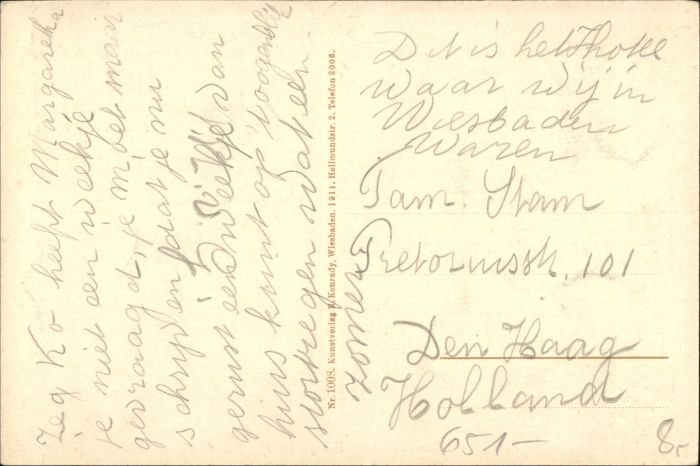 Zeg Ko heeft Margaretha
je niet een weekje
gevraagd, je moet maar
schrijven dat je nu
gerust een weekje van
huis kunt op 't oogenblik
stortregen wat een
zomer
Nr. 1008. Kunstverlag Konrady, Wiesbaden, 1911. Hellmundstr. 2. Telefon 3006.
Dit is het Hotel
waar wij in
Wiesbaden
waren
Fam. Stam
Pretoriusstr. 101
Den Haag
Holland
651-
8,-